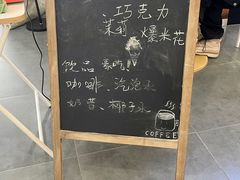 巧克力
茉莉 爆米花
饮品
咖啡、汽泡水
奶昔、椰子水
COFFEE